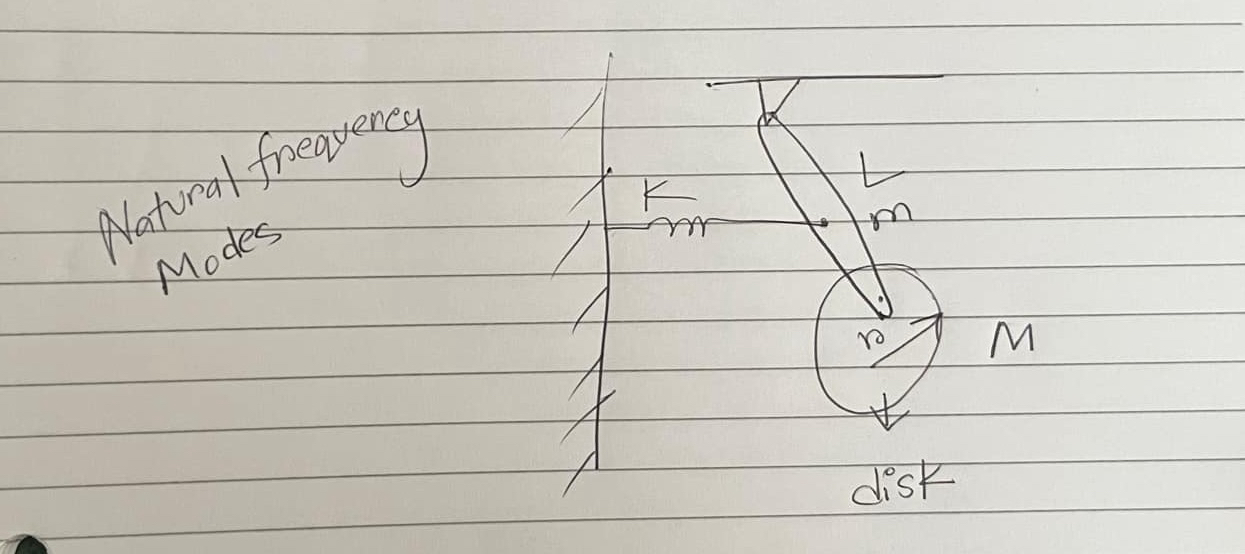 Natural frequency
Modes
K
L
m
r
M
disk